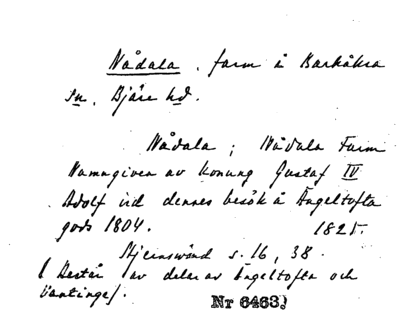 Nådala. farm å Barkåkra
sn. Bjäre hd.
Nådala; Nådala Farm
Namngiven av konung Gustaf IV
Adolf vid dennes besök å Ängeltofta
gods 1804. 1825.
Stjernswärd s. 16, 38.
( Består av delar av Ängeltofta och
Vantinge).
Nr 6463.